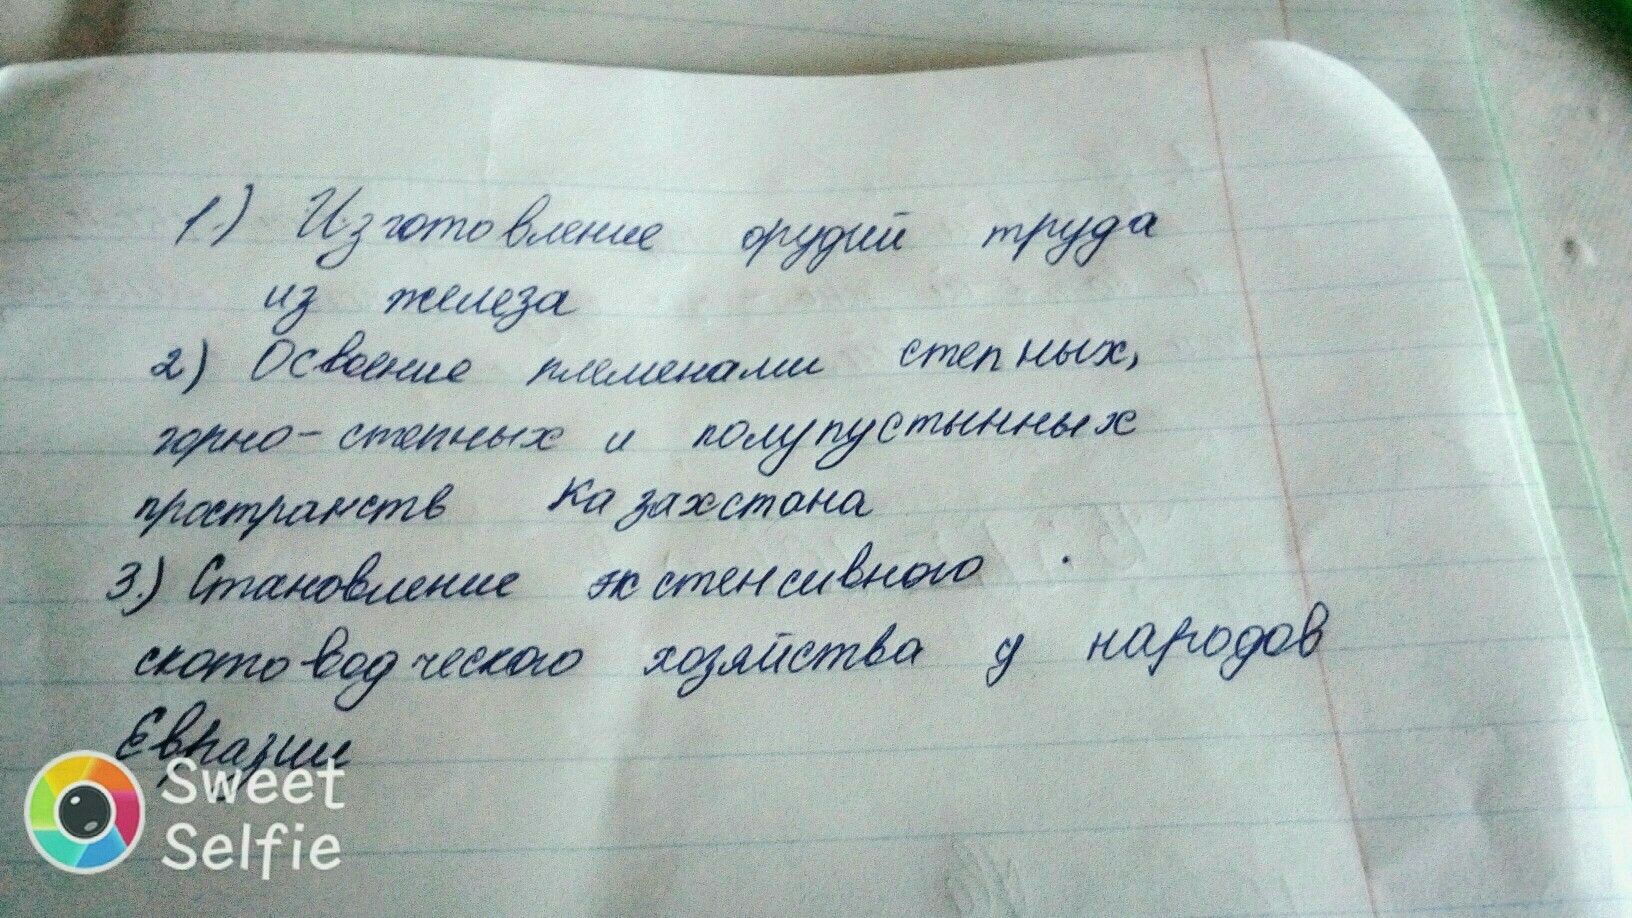 1.) Изготовление орудий труда
из железа
2) Освоение племенами степных,
горно-степных и полупустынных
пространств Казахстана
3.) Становление экстенсивного
скотоводческого хозяйства у народов
Евразии
Sweet
Selfie